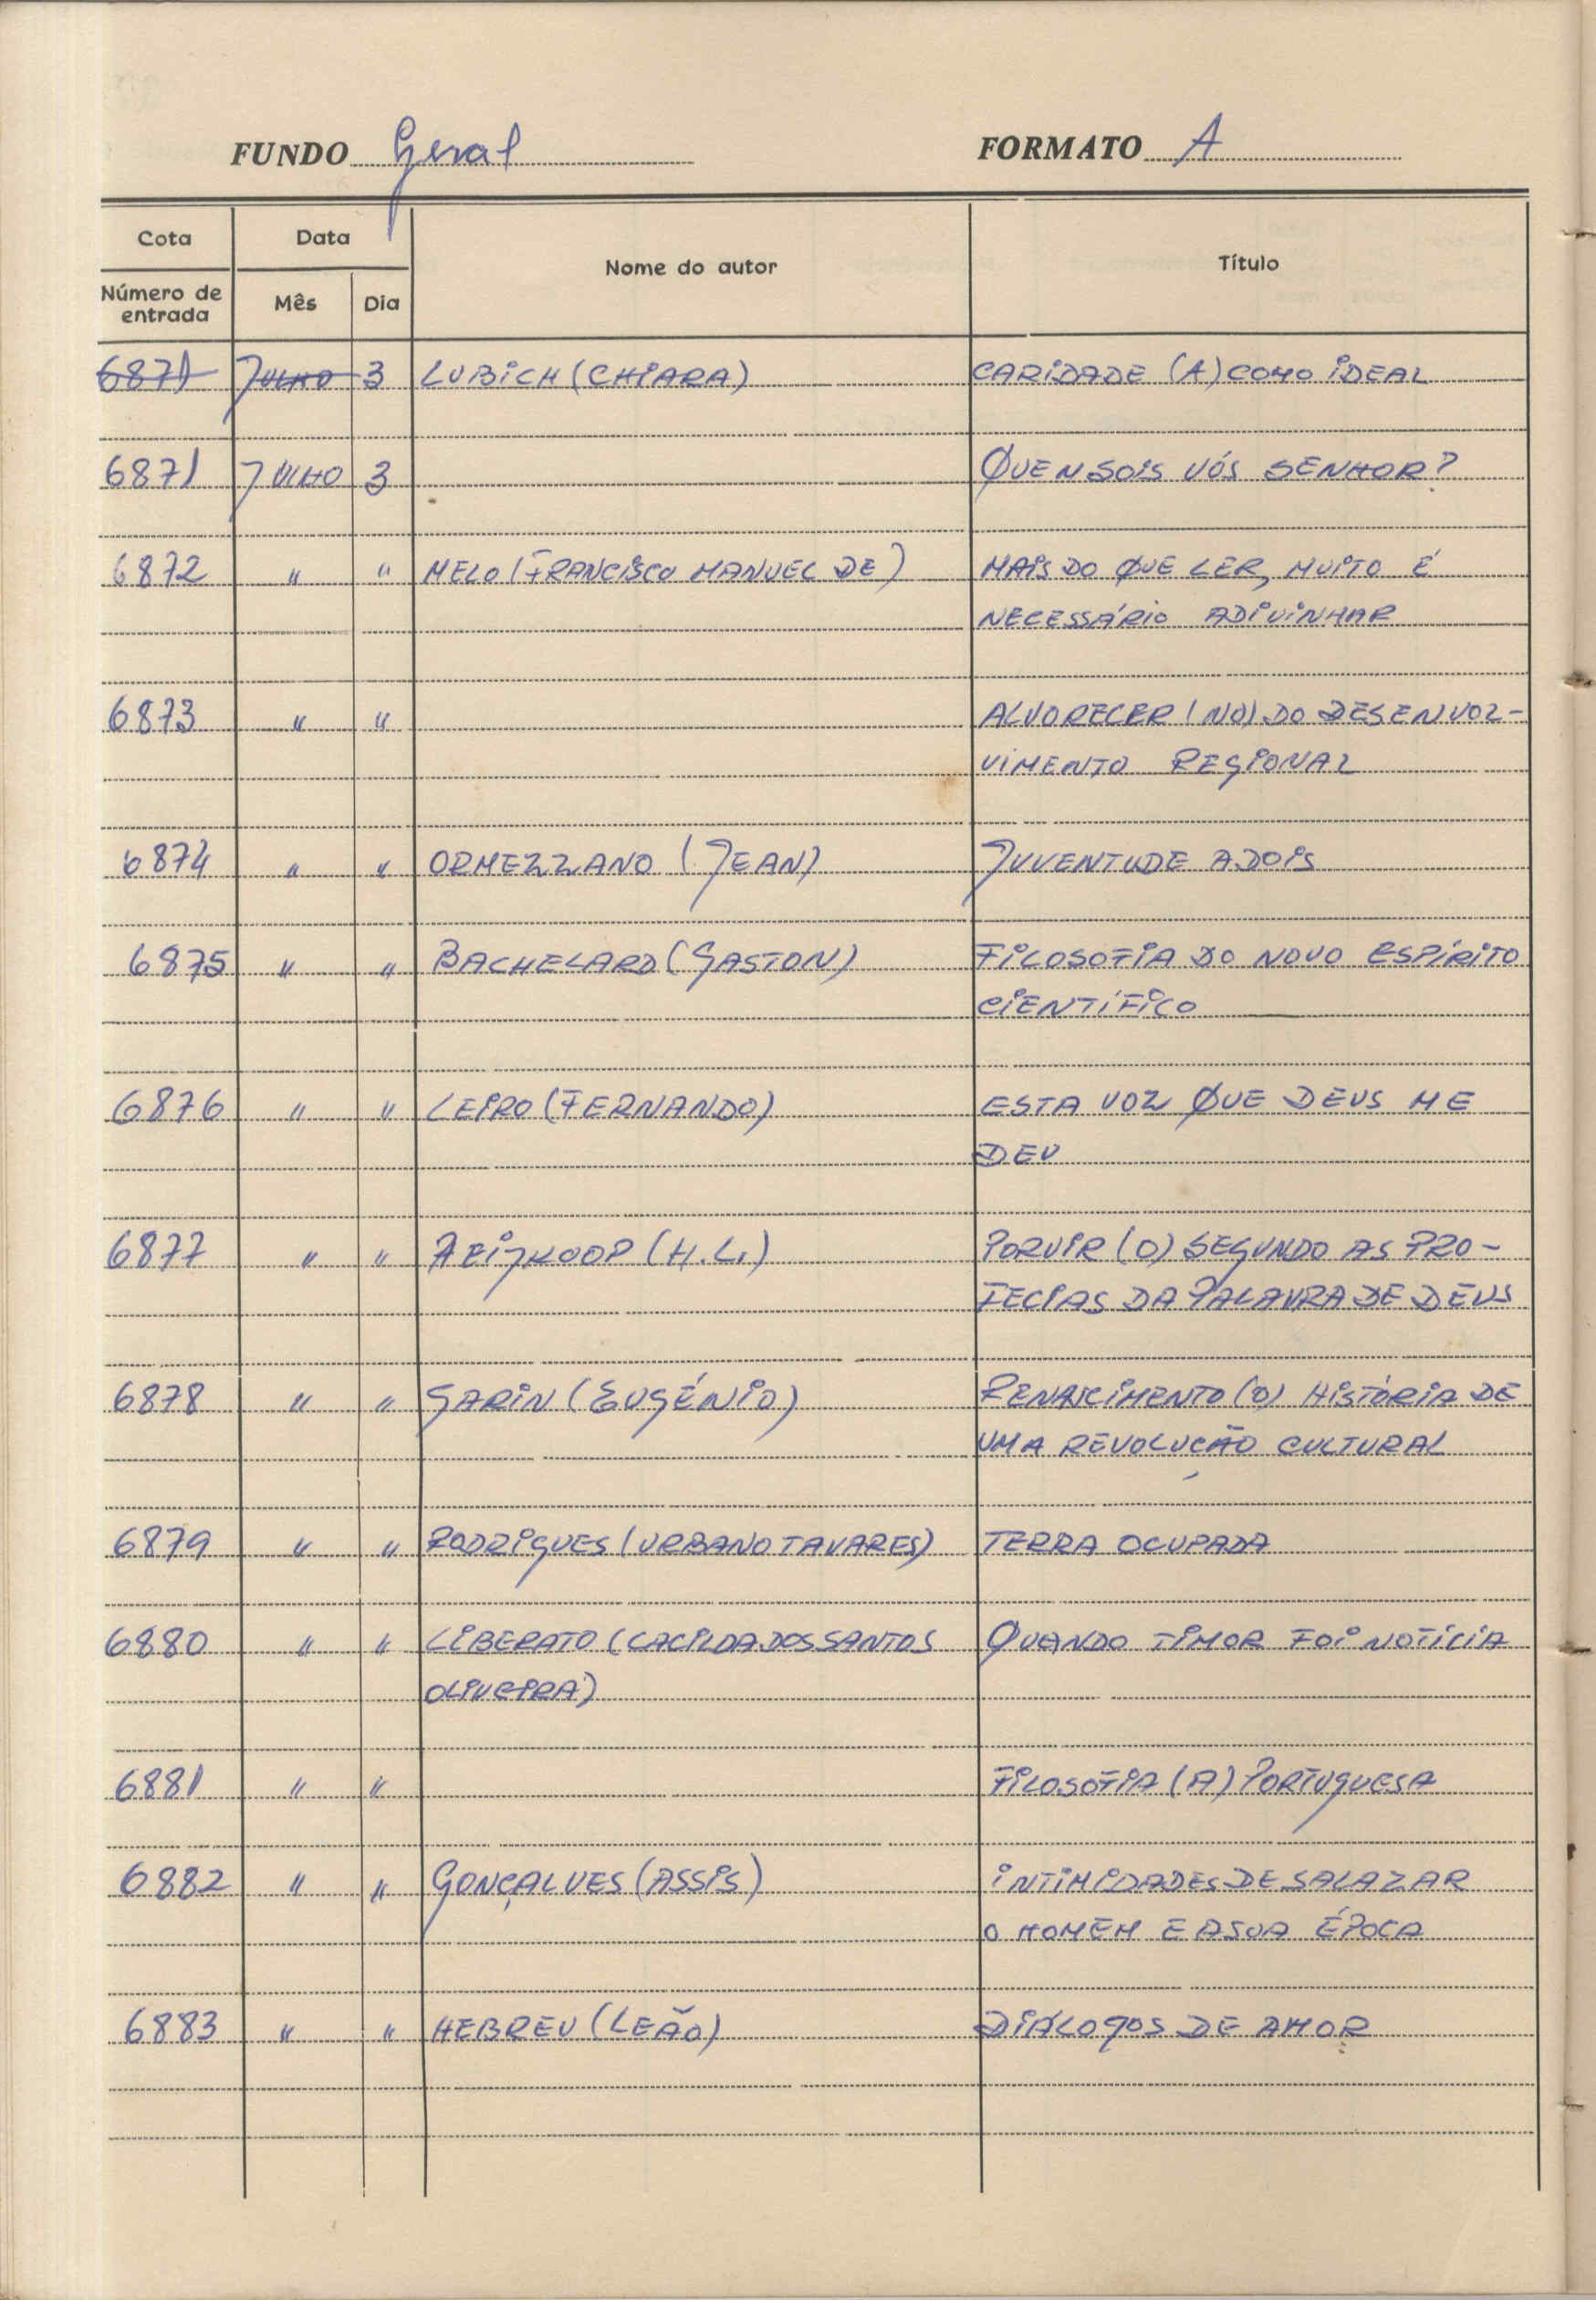 FUNDO Geral FORMATO A
Cota Data Nome do autor Título
Número de entrada Mês Dia
6871 JULHO 3 LUBICH (CHIARA) CARIDADE (A) COMO IDEAL
6871 JULHO 3 QUEN SOIS VÓS SENHOR?
6872 " " MELO (FRANCISCO MANUEL DE) MAIS DO QUE LER, MUITO É
NECESSÁRIO ADIVINHAR
6873 " " ALVORECER (NO) DO DESENVOL-
VIMENTO REGIONAL
6874 " " ORMEZZANO (JEAN) JUVENTUDE A DOIS
6875 " " BACHELARD (GASTON) FILOSOFIA DO NOVO ESPÍRITO
CIENTÍFICO
6876 " " LEIRO (FERNANDO) ESTA VOZ QUE DEUS ME
DEU
6877 " " (H.L.) PORVIR (O) SEGUNDO AS PRO-
FECIAS DA PALAVRA DE DEUS
6878 " " GARIN (EUGÉNIO) RENASCIMENTO (O) HISTÓRIA DE
UMA REVOLUÇÃO CULTURAL
6879 " " RODRIGUES (URBANO TAVARES) TERRA OCUPADA
6880 " " LIBERATO (CACILDA DOS SANTOS QUANDO TIMOR FOI NOTÍCIA
OLIVEIRA)
6881 " " FILOSOFIA (A) PORTUGUESA
6882 " " GONÇALVES (ASSIS) INTIMIDADES DE SALAZAR
O HOMEM E A SUA ÉPOCA
6883 " " HEBREU (LEÃO) DIÁLOGOS DE AMOR